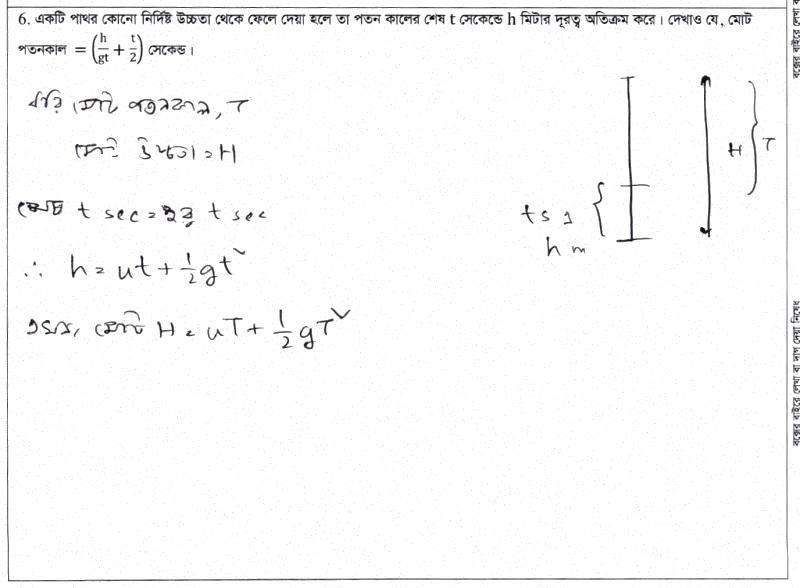 6. একটি পাথর কোনো নির্দিষ্ট উচ্চতা থেকে ফেলে দেয়া হলে তা পতন কালের শেষ t সেকেন্ডে h মিটার দূরত্ব অতিক্রম করে। দেখাও যে, মোট
পতনকাল = (h/gt + t/2) সেকেন্ড।
ধরি, মোট পতনকাল, T
মোট উচ্চতা = H
t sec = t sec
∴ h = ut + 1/2 gt²
মোট H = uT + 1/2 gT²
t s এ
h m
H
T
বক্সের বাইরে লেখা বা দাগ দেয়া নিষেধ